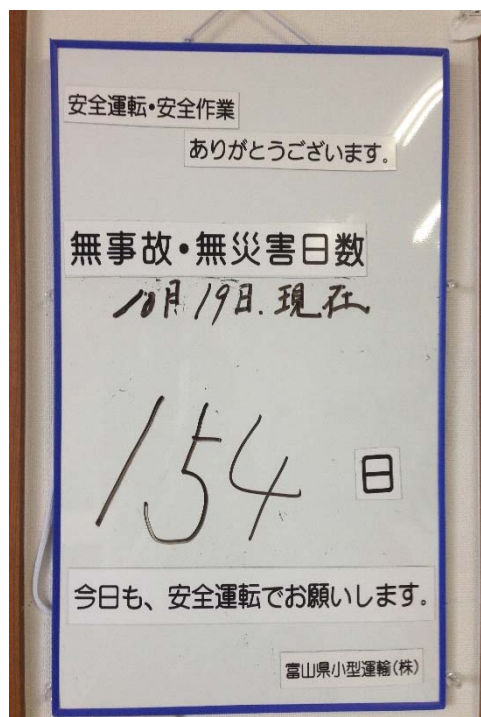 安全運転・安全作業
ありがとうございます。
無事故・無災害日数
10月19日.現在
154 日
今日も、安全運転でお願いします。
富山県小型運輸(株)